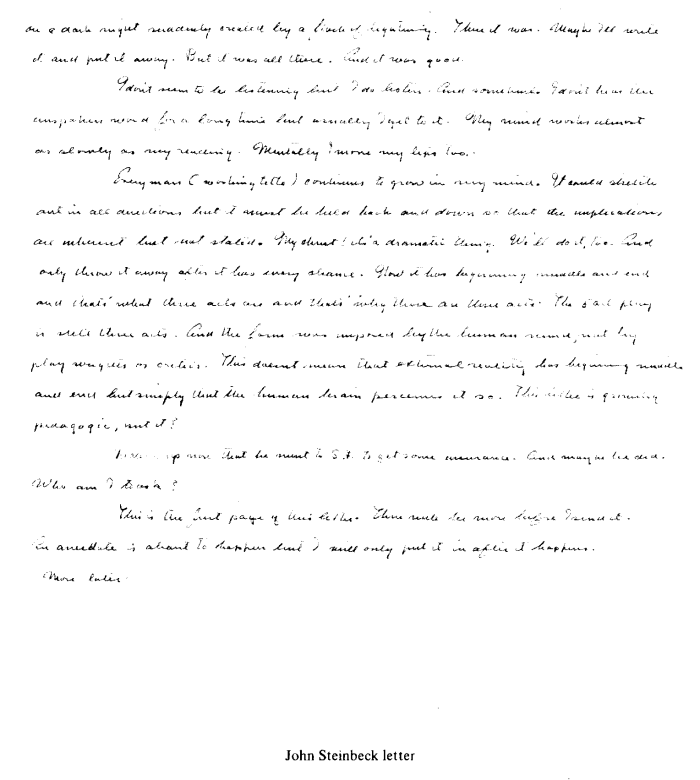 on a dark night suddenly created by a flash of lightning. There it was. Maybe I'll write
it and put it away. But it was all there. And it was good.
I don't seem to be listening but I do listen. And sometimes I don't hear the
unspoken word for a long time but usually I get to it. My mind works almost
as slowly as my reading. Mentally I move my lips too.
Everyman (working title) continues to grow in my mind. It could
out in all directions but it must be held back and down so that the implications
are inherent but not stated. My christ! it's a dramatic thing. We'll do it, too. And
only throw it away after it has every chance. Now it has beginning middle and end
and that's what three acts are and that's why there are three acts. The 5 act play
is still three acts. And the form was imposed by the human mind, not by
play wrights or critics. This doesn't mean that external reality has beginning middle
and end but simply that the human brain perceives it so. This letter is growing
pedagogic, isn't it?
up now that he went to S.A. to get some assurance. And maybe he did.
Who am I to ask?
This is the first page of this letter. There will be more before I send it.
An anecdote is about to happen but I will only put it in after it happens.
More later.
John Steinbeck letter